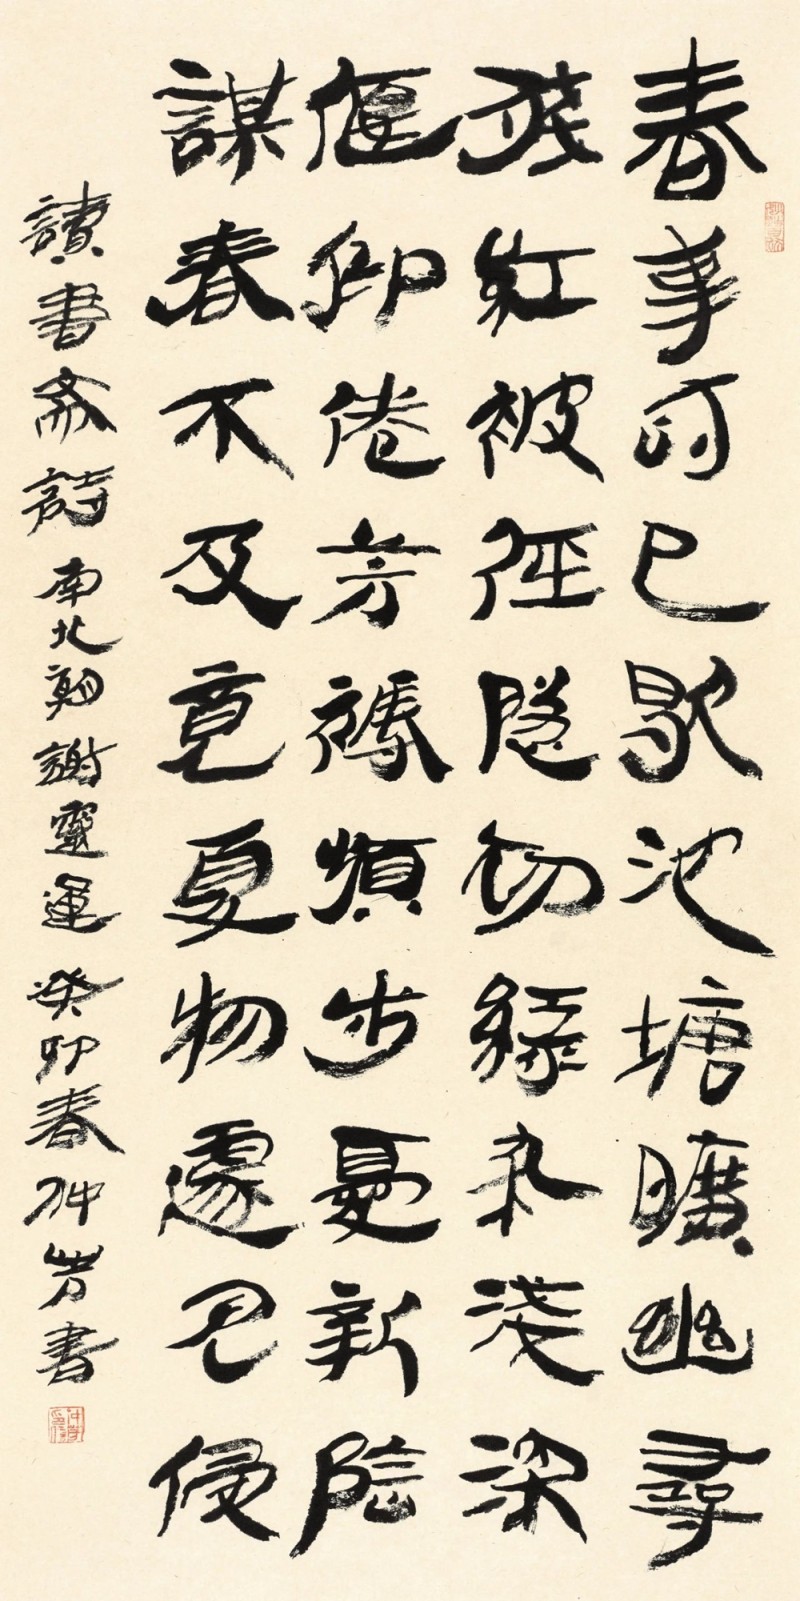 春事时已歇池塘曠幽尋
残紅被徑隧初緑杂淺深
偃仰倦芳褥頻步憂新陰
謀春不及竟夏物遽見侵
讀書斋詩南北朝謝靈運癸卯春仲芳書